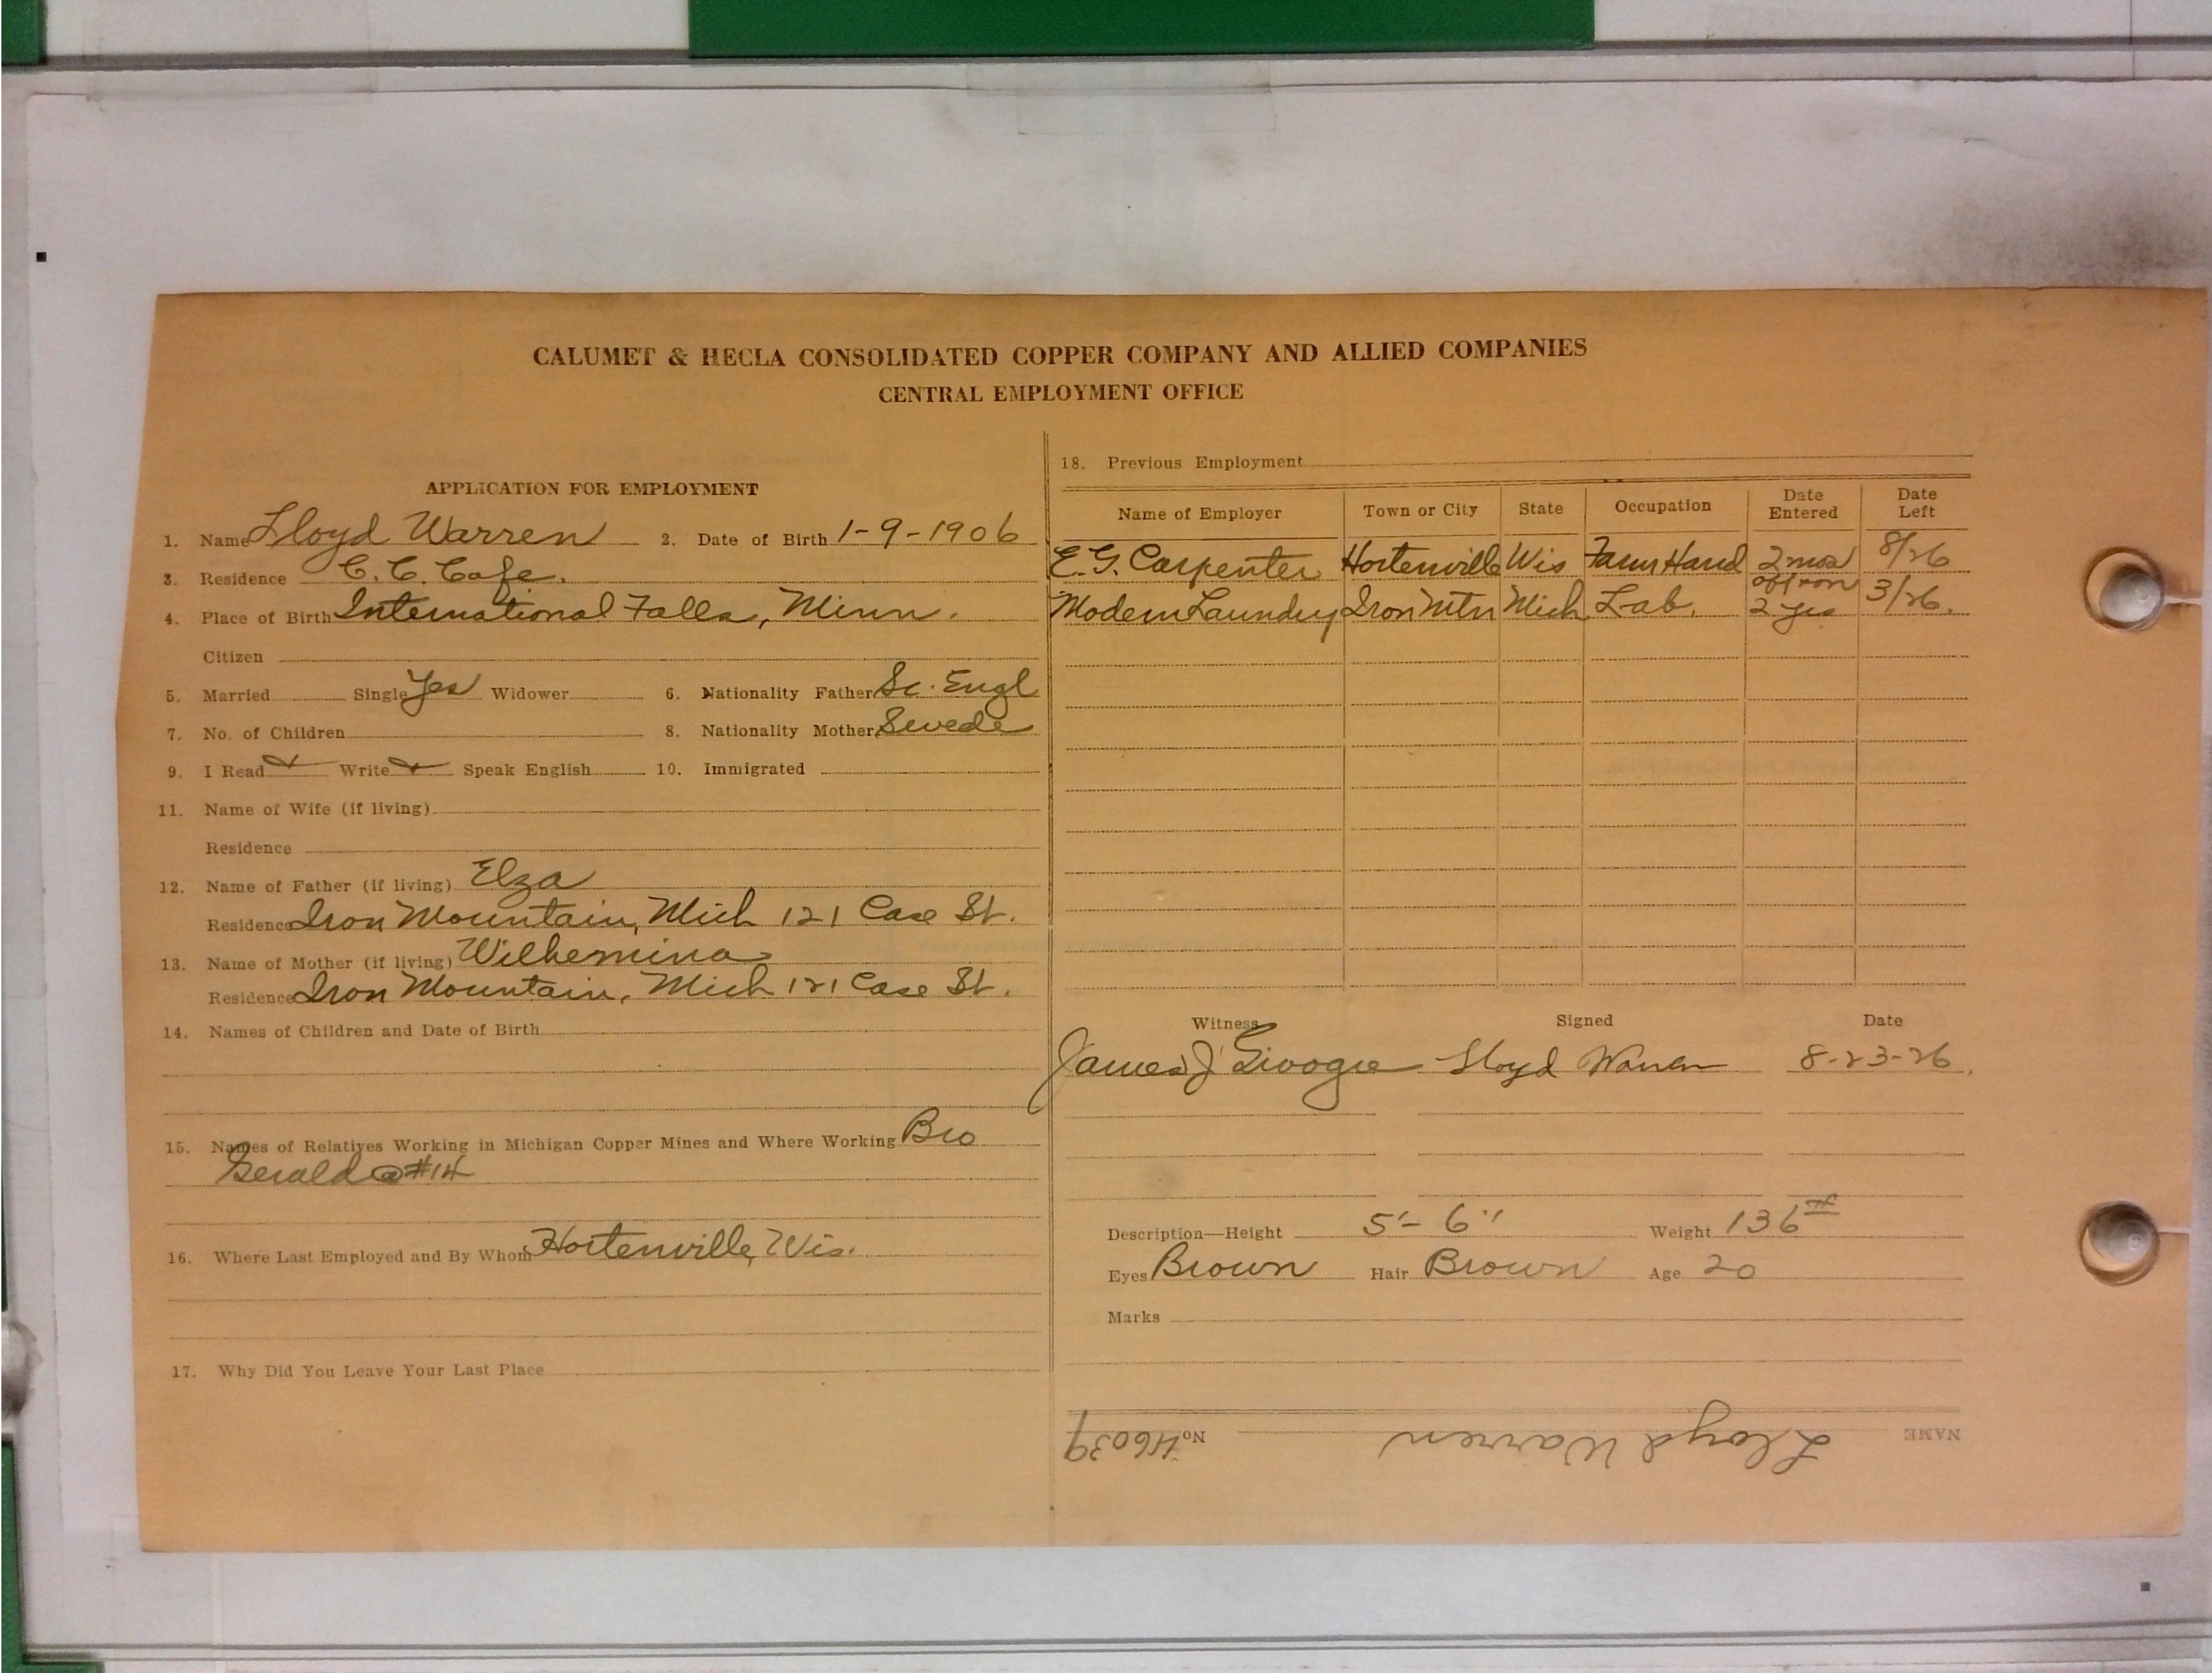 CALUMET & HECLA CONSOLIDATED COPPER COMPANY AND ALLIED COMPANIES
CENTRAL EMPLOYMENT OFFICE
APPLICATION FOR EMPLOYMENT
1. Name Lloyd Warren 2. Date of Birth 1-9-1906
3. Residence C.C. Cafe.
4. Place of Birth International Falls, Minn.
Citizen
5. Married Single Yes Widower 6. Nationality Father Sc. Engl
7. No. of Children 8. Nationality Mother Swede
9. I Read Write Speak English 10. Immigrated
11. Name of Wife (if living)
Residence
12. Name of Father (if living) Elza
Residence Iron Mountain, Mich 121 Case St.
13. Name of Mother (if living) Wilhemina
Residence Iron Mountain, Mich 121 Case St.
14. Names of Children and Date of Birth
15. Names of Relatives Working in Michigan Copper Mines and Where Working Bro
Gerald @ #14
16. Where Last Employed and By Whom Hortenville, Wis.
17. Why Did You Leave Your Last Place
18. Previous Employment
Name of Employer Town or City State Occupation Date Entered Date Left
E.G. Carpenter Hortenville Wis Farm Hand 2 mos 8/26
Modern Laundry Iron Mtn Mich Lab. off & on 2 yrs 3/26.
Witness Signed Date
James J Lloyd Warren 8-23-26.
Description—Height 5'-6" Weight 136#
Eyes Brown Hair Brown Age 20
Marks
NAME Lloyd Warren No. H6039